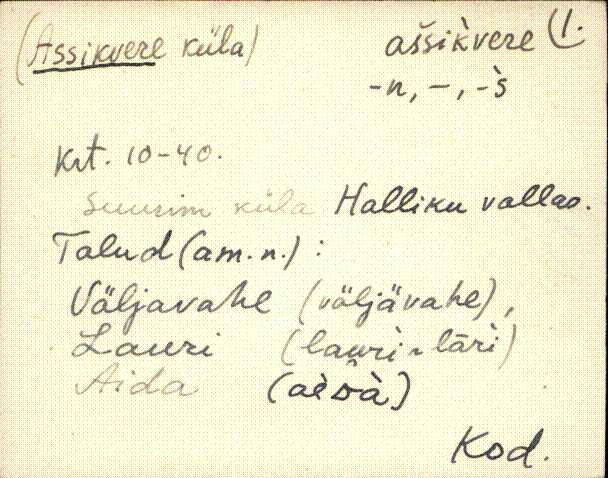 (Assikvere küla) aššik̀vere (1.
-n, –, -s̀
Krt. 10-40.
Suurim küla Halliku vallas.
Talud (am.n.) :
Väljavahe (väljävahe),
Lauri (lauri ~ lāri)
Aida
Kod.